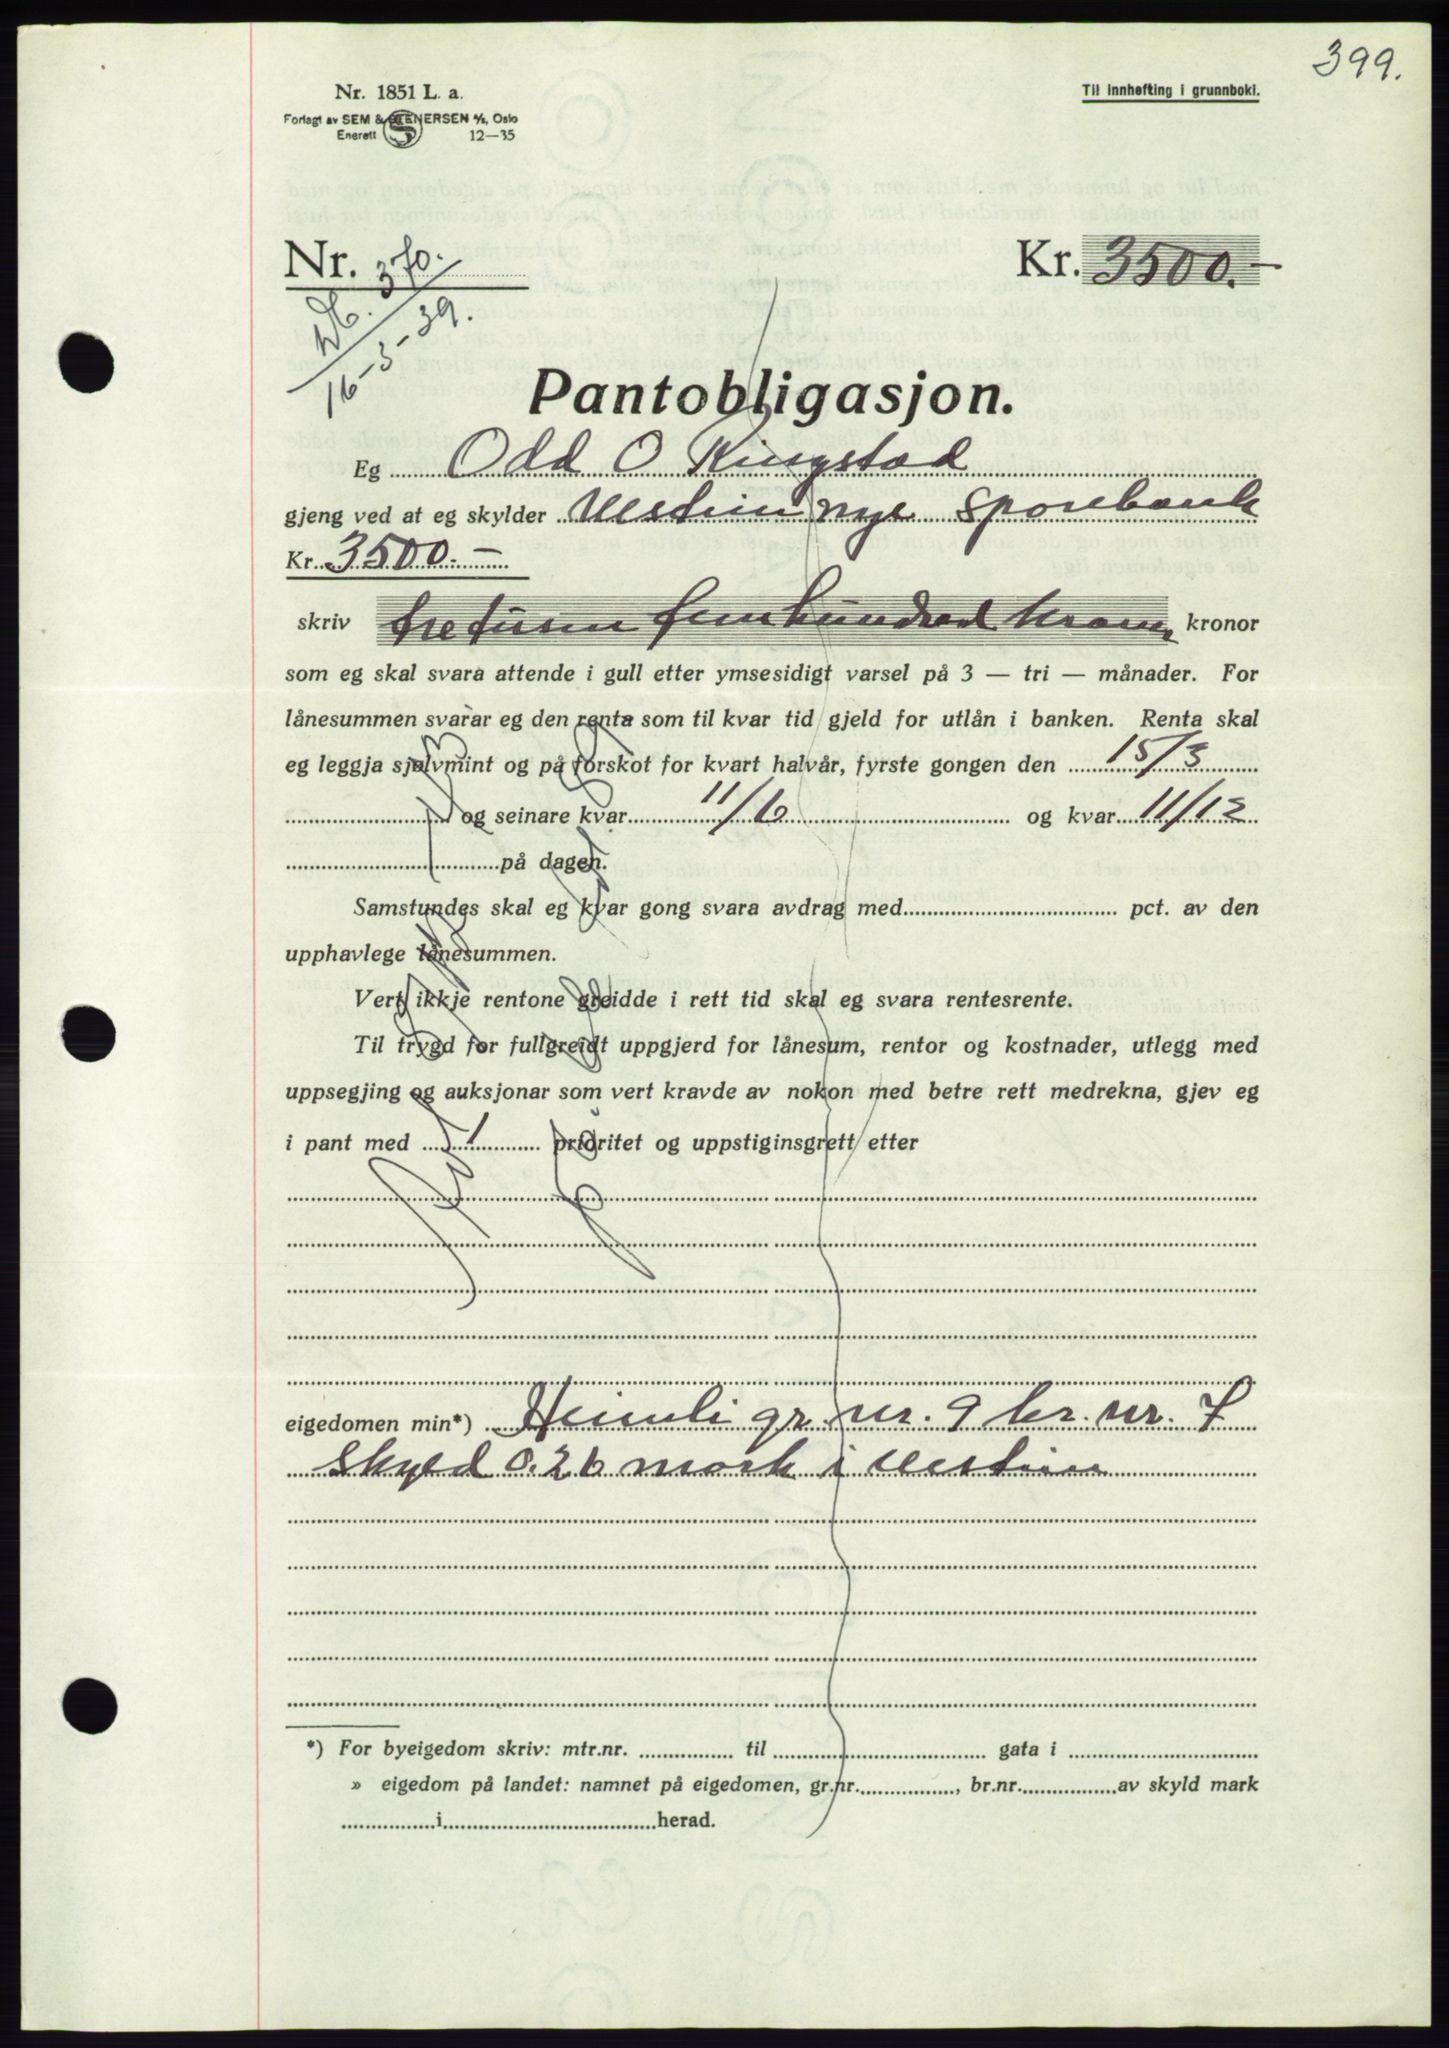 399.
Nr. 1851 L. a.
Forlagt av SEM & STENERSEN A/S, Oslo
Enerett 12—35
Til innhefting i grunnboki.
Nr. 370.
16-3-39.
Kr. 3500.-
Pantobligasjon.
Eg Odd O Ringstad
gjeng ved at eg skylder Vestnes nye Sparebank
Kr. 3500.-
skriv tretusen femhundrad kroner kronor
som eg skal svara attende i gull etter ymsesidigt varsel på 3 — tri — månader. For
lånesummen svarar eg den renta som til kvar tid gjeld for utlån i banken. Renta skal
eg leggja sjølvmint og på forskot for kvart halvår, fyrste gongen den 15/3
og seinare kvar 11/6 og kvar 11/12
på dagen.
Samstundes skal eg kvar gong svara avdrag med pct. av den
upphavlege lånesummen.
Vert ikkje rentone greidde i rett tid skal eg svara rentesrente.
Til trygd for fullgreidt uppgjerd for lånesum, rentor og kostnader, utlegg med
uppsegjing og auksjonar som vert kravde av nokon med betre rett medrekna, gjev eg
i pant med 1 prioritet og uppstiginsgrett etter
eigedomen min*) Heimli gr. nr. 9 br. nr. 7
Skyld 0.26 mark i Vestnes
*) For byeigedom skriv: mtr.nr. til gata i
» eigedom på landet: namnet på eigedomen, gr.nr. , br.nr. av skyld mark
i herad.